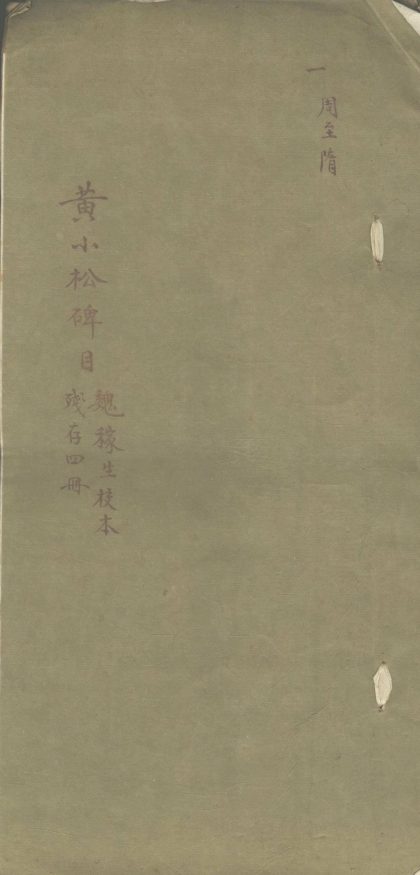 一 周至隋
黄小松碑目
魏稼生校本
残存四冊